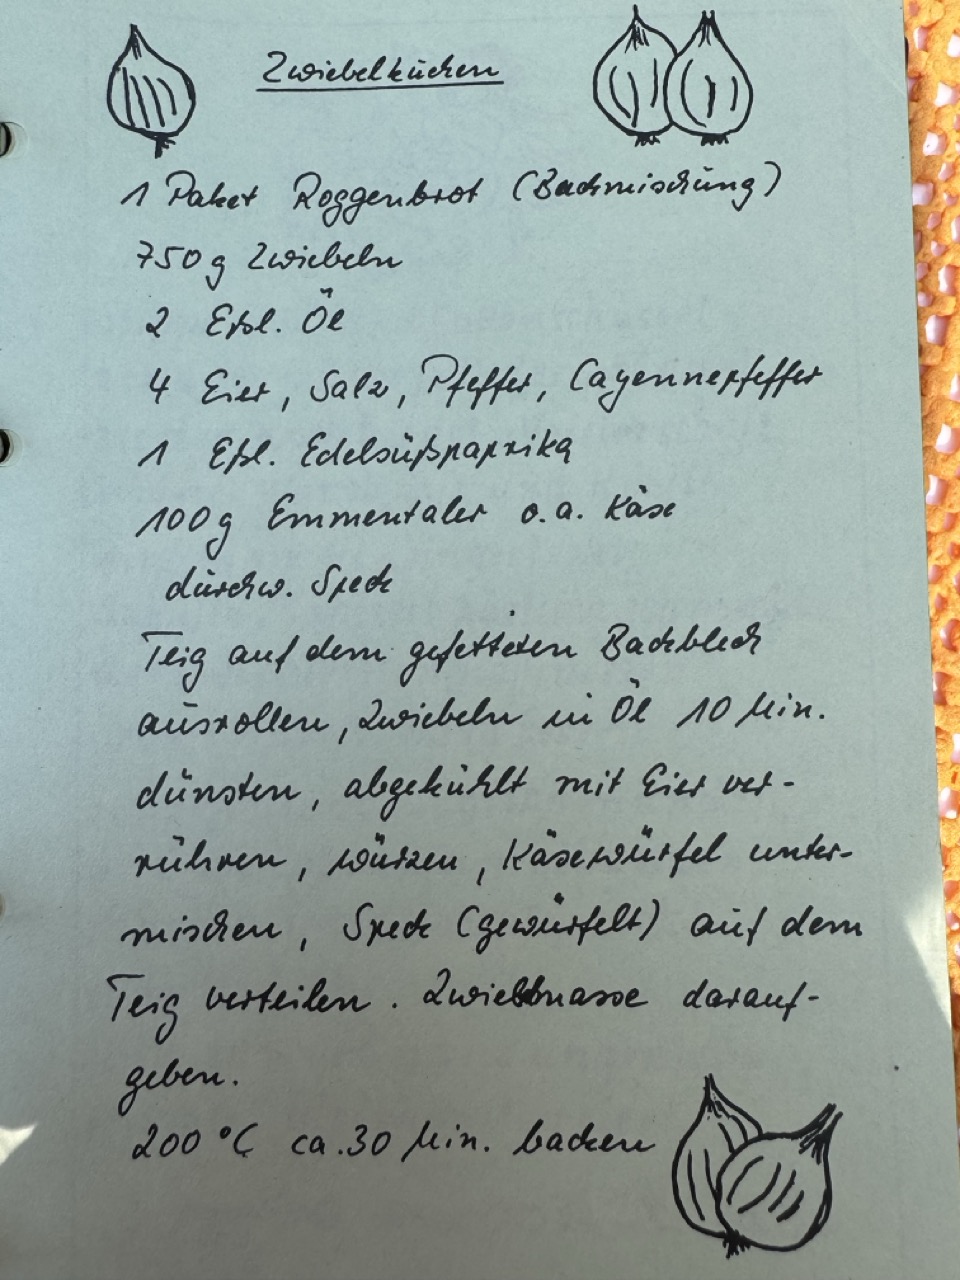 Zwiebelkuchen
1 Paket Roggenbrot (Backmischung)
750g Zwiebeln
2 Eßl. Öl
4 Eier, Salz, Pfeffer, Cayennepfeffer
1 Eßl. Edelsüßpaprika
100g Emmentaler o.a. Käse
durchw. Speck
Teig auf dem gefetteten Backblech
ausrollen, Zwiebeln in Öl 10 Min.
dünsten, abgekühlt mit Eier ver-
rühren, würzen, Käsewürfel unter-
mischen, Speck (gewürfelt) auf dem
Teig verteilen. Zwiebelmasse darauf-
geben.
200 °C ca. 30 Min. backen